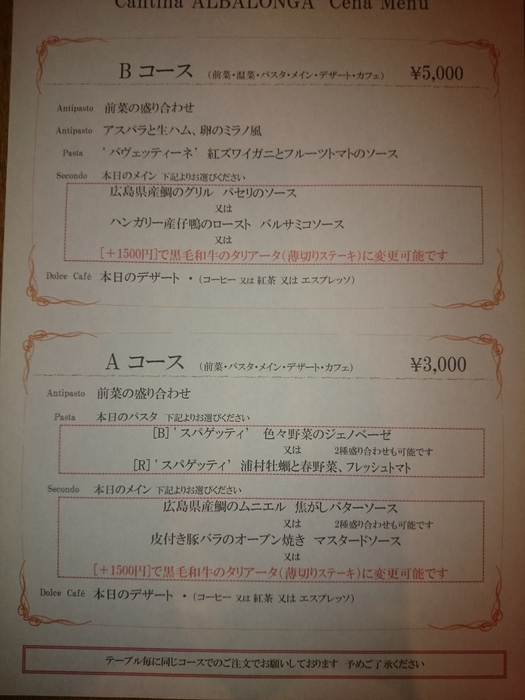 Cantina ALBALONGA Cena Menu
B コース （前菜・温菜・パスタ・メイン・デザート・カフェ） ¥5,000
Antipasto 前菜の盛り合わせ
Antipasto アスパラと生ハム、卵のミラノ風
Pasta ’バヴェッティーネ’ 紅ズワイガニとフルーツトマトのソース
Secondo 本日のメイン 下記よりお選びください
広島県産鯛のグリル パセリのソース
又は
ハンガリー産仔鴨のロースト バルサミコソース
又は
[＋1500円]で黒毛和牛のタリアータ(薄切りステーキ)に変更可能です
Dolce Café 本日のデザート ・（コーヒー 又は 紅茶 又は エスプレッソ）
A コース （前菜・パスタ・メイン・デザート・カフェ） ¥3,000
Antipasto 前菜の盛り合わせ
Pasta 本日のパスタ 下記よりお選びください
[B]’スパゲッティ’ 色々野菜のジェノベーゼ
又は 2種盛り合わせも可能です
[R]’スパゲッティ’ 浦村牡蠣と春野菜、フレッシュトマト
Secondo 本日のメイン 下記よりお選びください
広島県産鯛のムニエル 焦がしバターソース
又は 2種盛り合わせも可能です
皮付き豚バラのオーブン焼き マスタードソース
又は
[＋1500円]で黒毛和牛のタリアータ(薄切りステーキ)に変更可能です
Dolce Café 本日のデザート ・（コーヒー 又は 紅茶 又は エスプレッソ）
テーブル毎に同じコースでのご注文でお願いしております 予めご了承ください